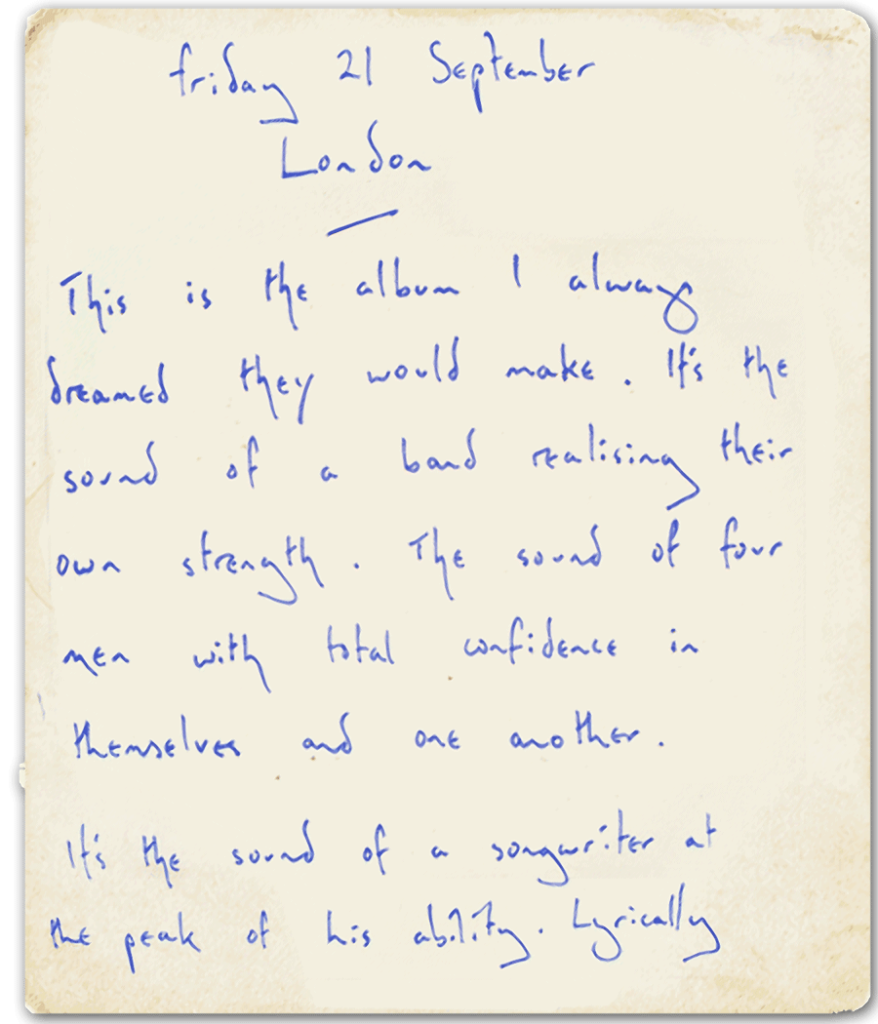 friday 21 September
London
This is the album I always
dreamed they would make. It's the
sound of a band realising their
own strength. The sound of four
men with total confidence in
themselves and one another.
It's the sound of a songwriter at
the peak of his ability. Lyrically